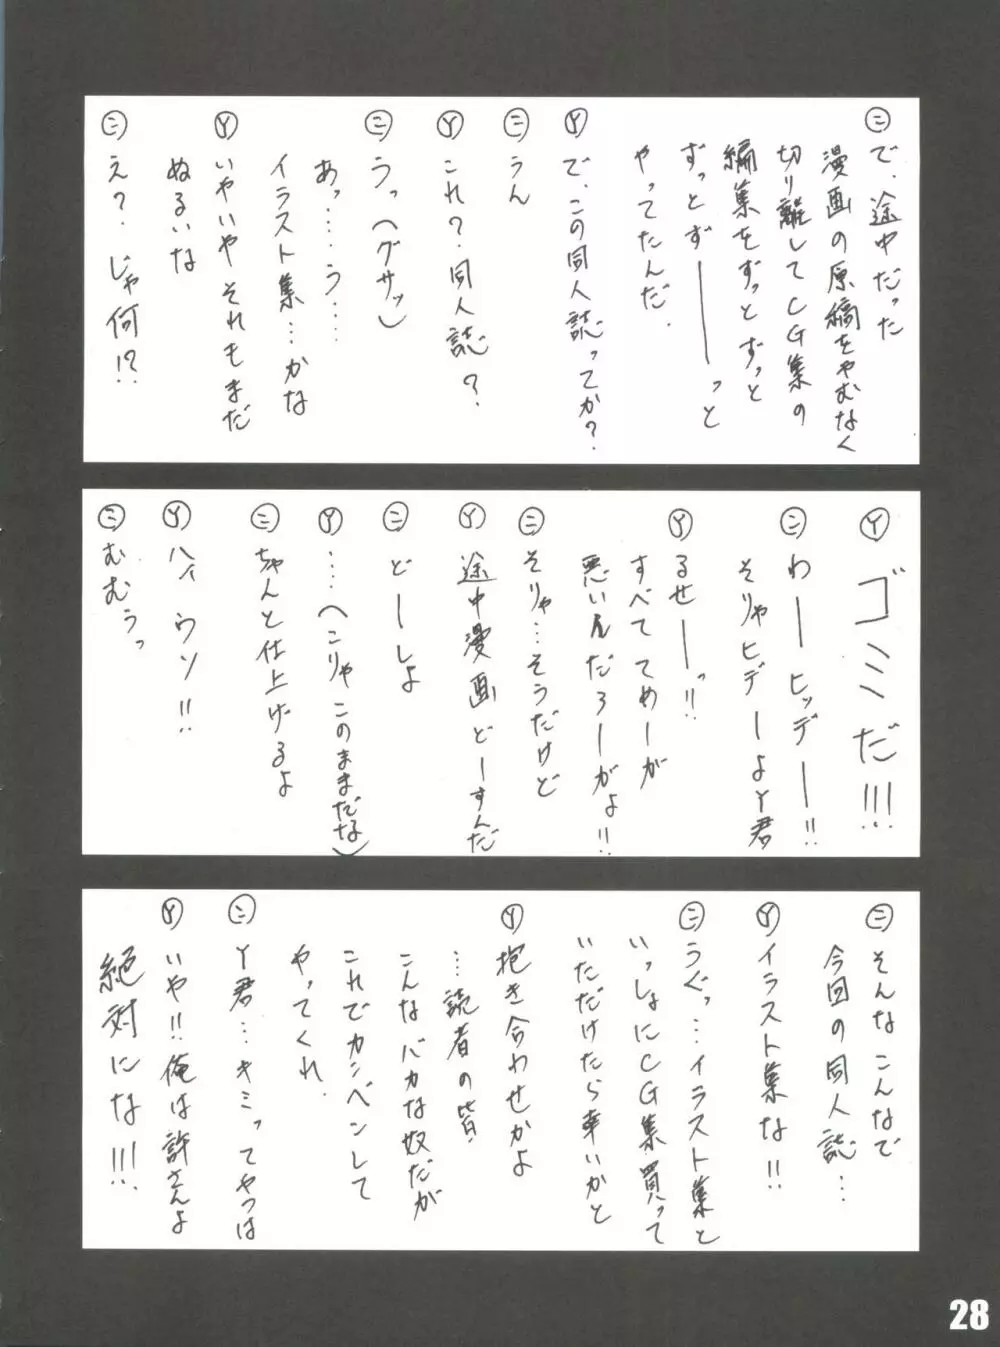 ㊁ で、途中だった
漫画の原稿をやむなく
切り離してCG集の
編集をずっとずっと
ずっとずーーーっと
やってたんだ.
Ⓨ で、この同人誌ってか?
㊁ うん
Ⓨ これ?同人誌?
㊁ うっ(グサッ)
あっ……う……
イラスト集…かな
Ⓨ いやいやそれもまだ
ぬるいな
㊁ え?じゃ何!?
Ⓨ ゴミだ!!!
㊁ わーヒッデー!!
そりゃヒデーよY君
Ⓨ るせーっ!!
すべててめーが
悪いんだろーがよ!!
㊁ そりゃ…そうだけど
Ⓨ 途中漫画どーすんだ
㊁ どーしよ
Ⓨ ……(こりゃこのままだな)
㊁ ちゃんと仕上げるよ
Ⓨ ハイ ウソ!!
㊁ むむうっ
㊁ そんなこんなで
今回の同人誌…
Ⓨ イラスト集な!!
㊁ うぐっ…イラスト集と
いっしょにCG集買って
いただけたら幸いかと
Ⓨ 抱き合わせかよ
……読者の皆.
こんなバカな奴だが
これでカンベンして
やってくれ.
㊁ Y君…キミってやつは
Ⓨ いや!!俺は許さんよ
絶対にな!!!
28